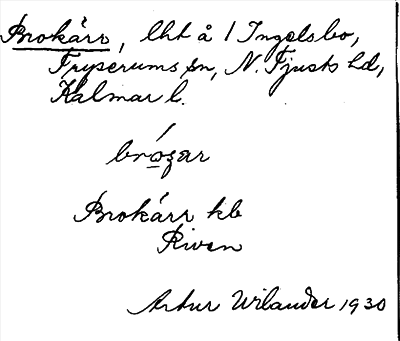 Brokärr, lht å 1 Ingelsbo,
Fryserums sn, N. Tjusts hd,
Kalmar l.
brózar
Brokärr kb
Riven
Artur Wilander 1930